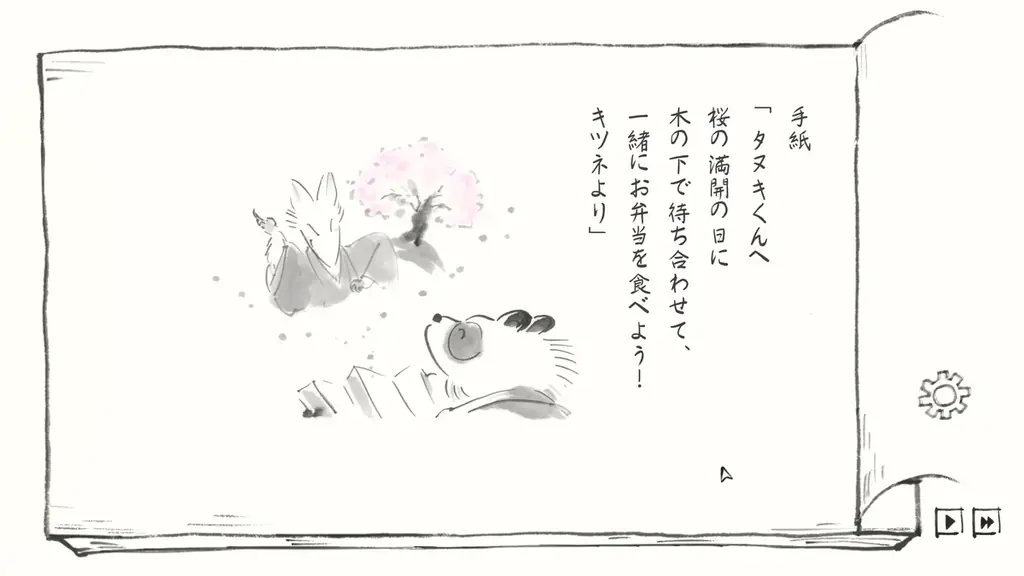 手紙
「タヌキくんへ
桜の満開の日に
木の下で待ち合わせて、
一緒にお弁当を食べよう！
キツネより」